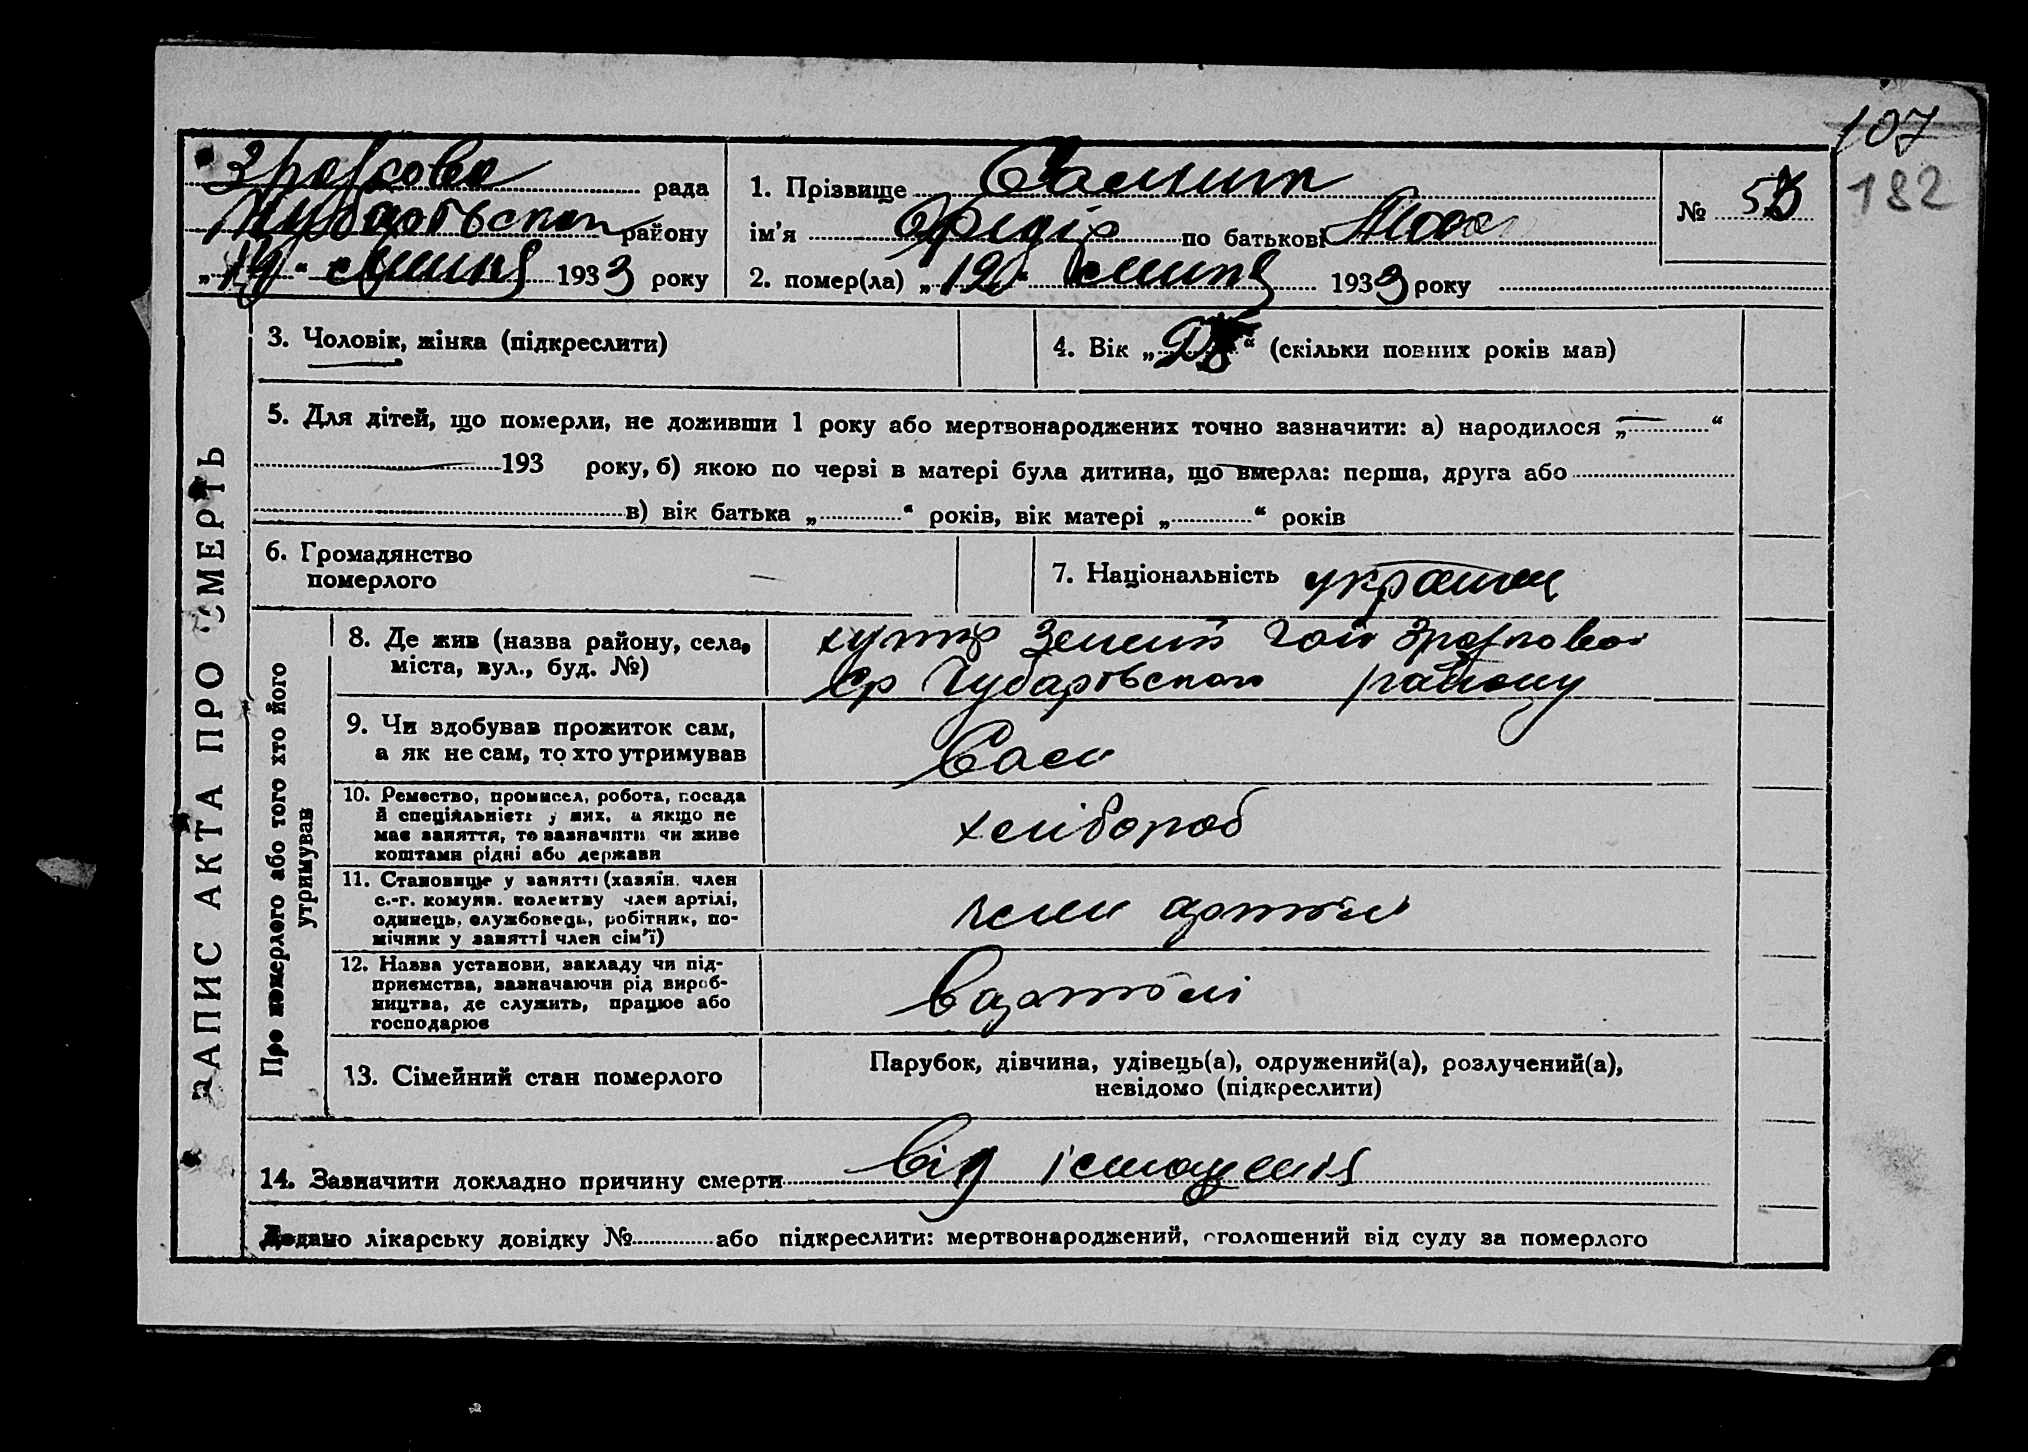 107
182
Зразкова рада
Чубарівського району
„19“ липня 1933 року
1. Прізвище
№ 53
ім'я Федір по батькові
2. помер(ла) „19“ липня 1933 року
ЗАПИС АКТА ПРО СМЕРТЬ
3. Чоловік, жінка (підкреслити)
4. Вік „ “ (скільки повних років мав)
5. Для дітей, що померли, не доживши 1 року або мертвонароджених точно зазначити: а) народилося „—“
193 року, б) якою по черзі в матері була дитина, що вмерла: перша, друга або
в) вік батька „ “ років, вік матері „ “ років
6. Громадянство
померлого —
7. Національність
Про померлого або того хто його
утримував
8. Де жив (назва району, села,
міста, вул., буд. №)
хутір Зелений Гай
ср Чубарівського району
9. Чи здобував прожиток сам,
а як не сам, то хто утримував
Сам
10. Ремество, промисел, робота, посада
й спеціяльність у них, а якщо не
має заняття, то зазначити чи живе
коштами рідні або держави
хлібороб
11. Становище у занятті (хазяїн, член
с.-г. комуни, колективу член артілі,
одинець, службовець, робітник, по-
мічник у занятті член сім'ї)
член артілі
12. Назва установи, закладу чи під-
приємства, зазначаючи рід вироб-
ництва, де служить, працює або
господарює
в артілі
13. Сімейний стан померлого
Парубок, дівчина, удівець(а), одружений(а), розлучений(а),
невідомо (підкреслити)
14. Зазначити докладно причину смерти від істощенія
Додано лікарську довідку № або підкреслити: мертвонароджений, оголошений від суду за померлого